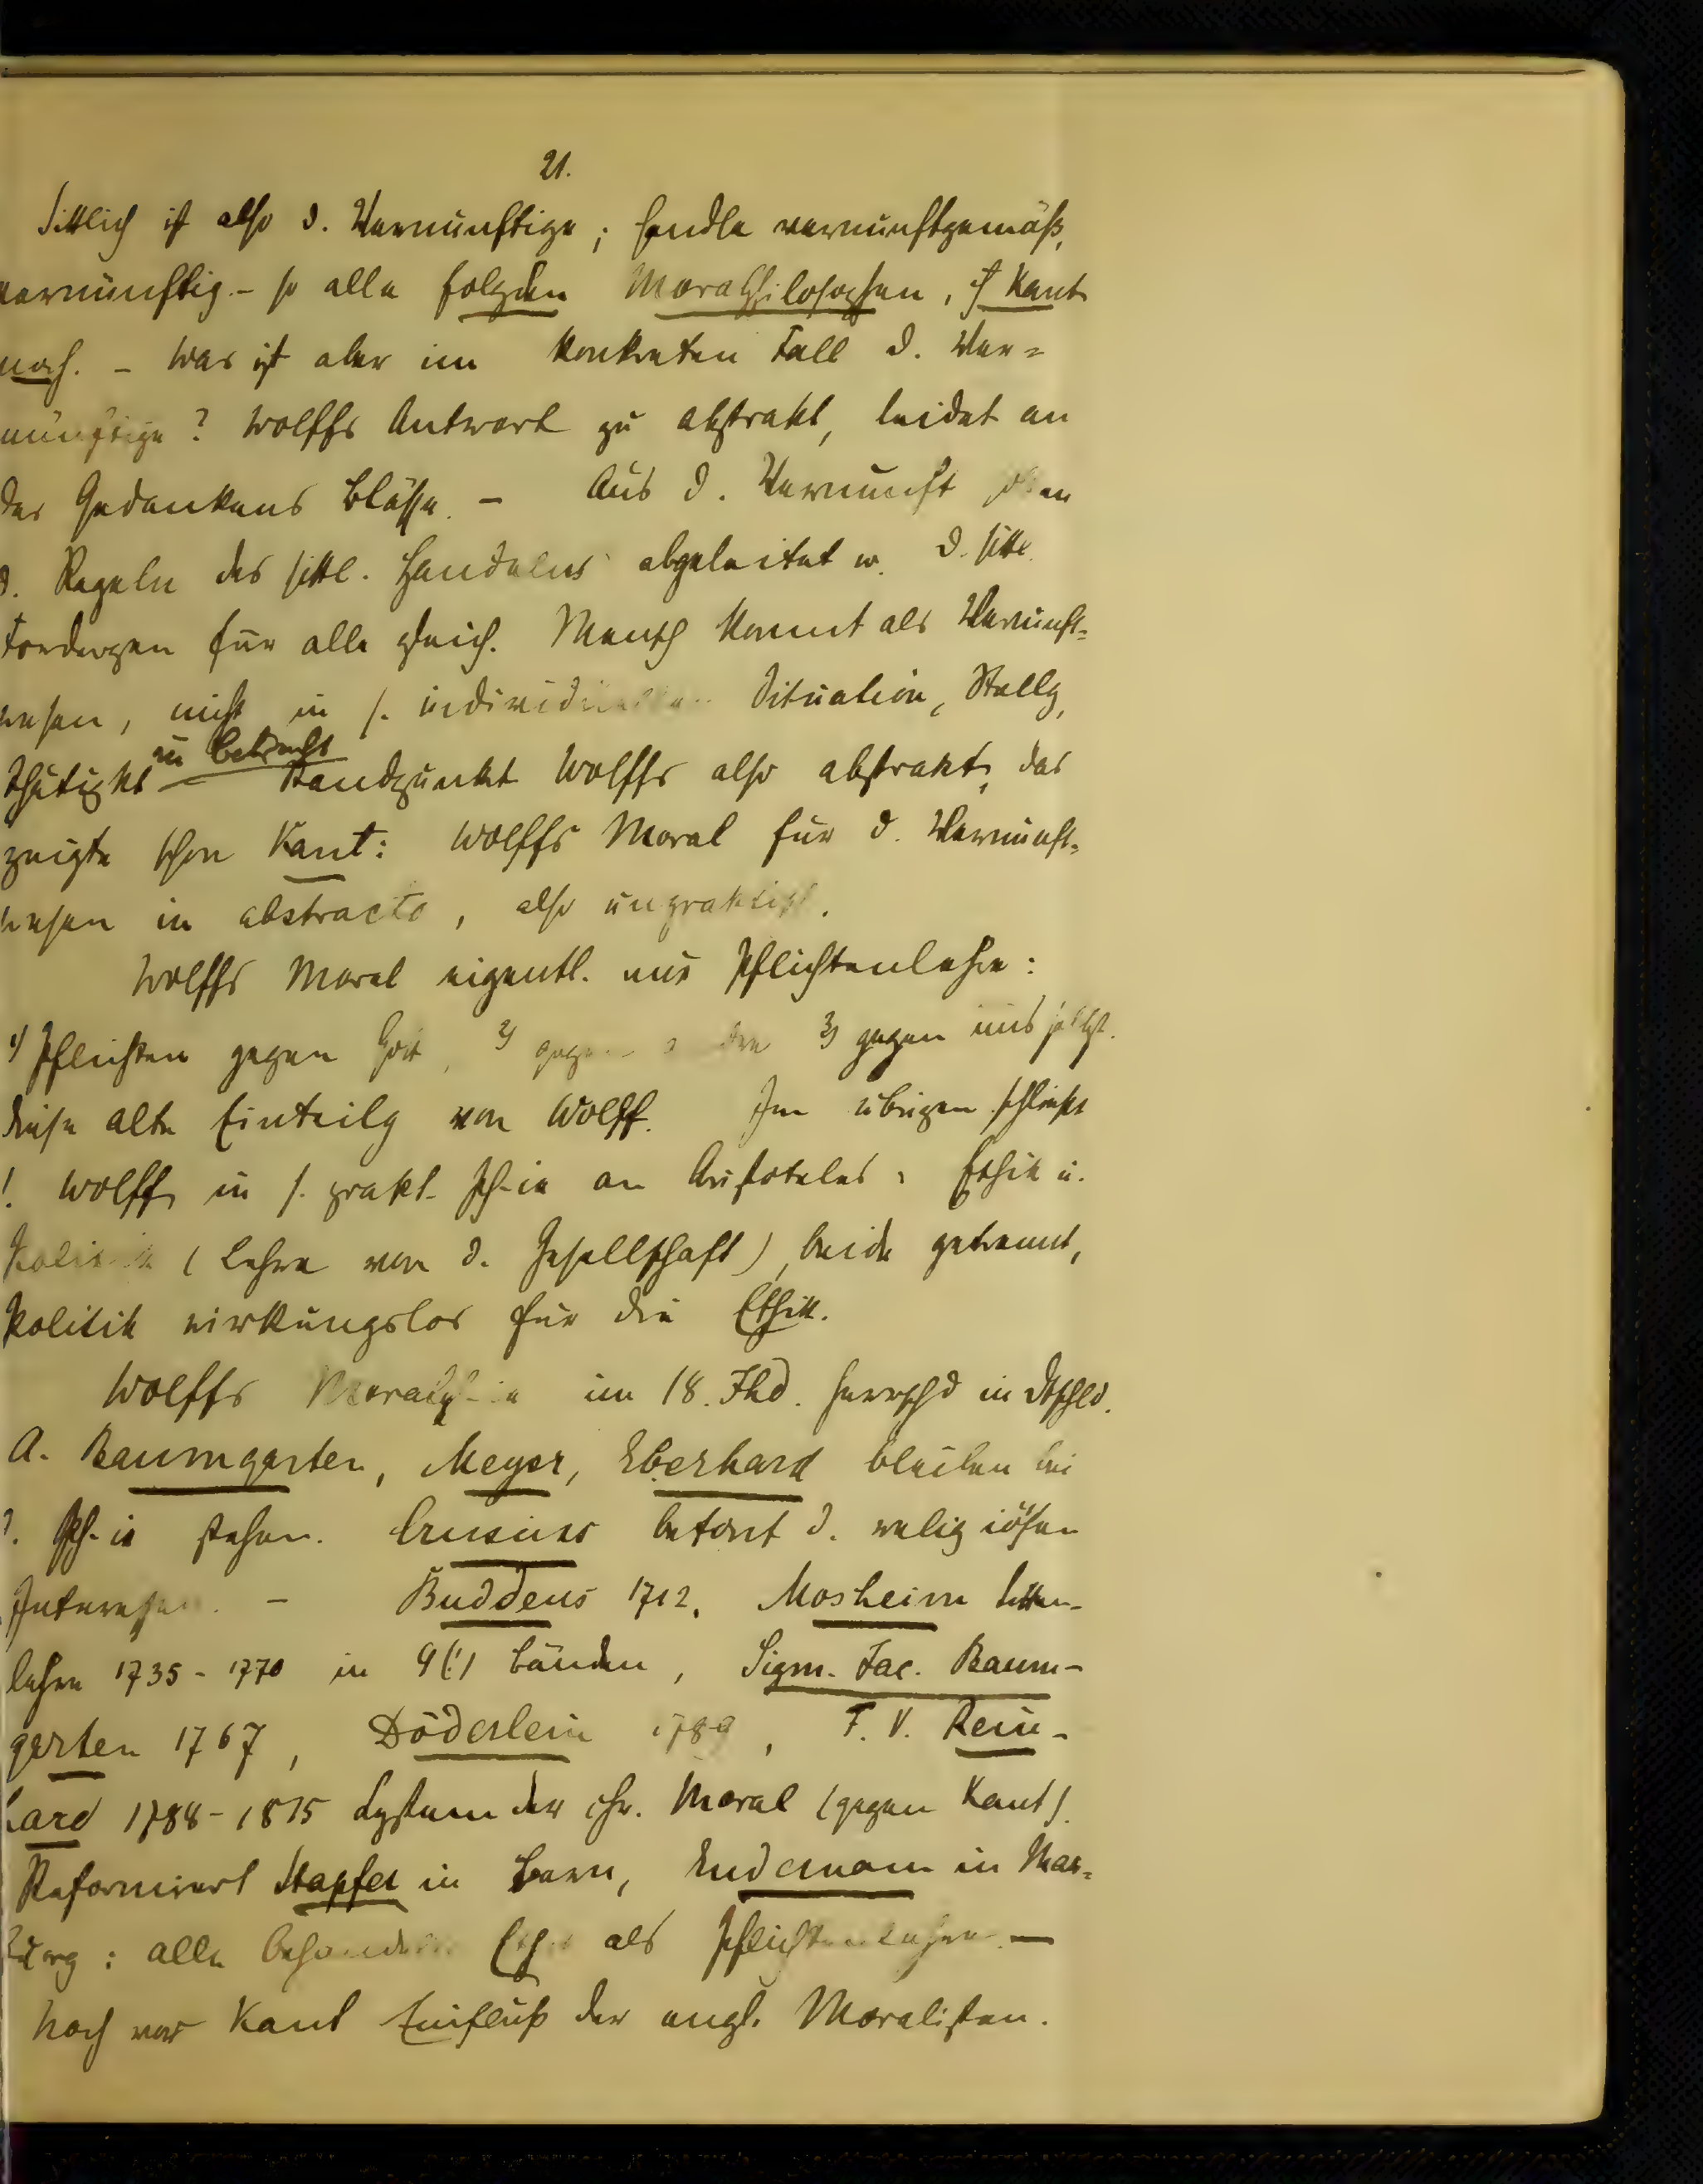 21.
Sittlich ist also d. Vernünftige; handle vernunftgemäß,
vernünftig. – so alle folgden Moralphilosophen, Kant
noch. – Was ist aber im konkreten Fall d. Ver=
nünftige? Wolffs Antwort zu abstrakt, leidet an
des Gedankens Blässe. – Aus d. Vernunft sollen
d. Regeln des sittl. Handelns abgeleitet w. d. sittl.
Forderungen für alle gleich. Mensch kommt als Vernunft=
wesen, nicht in s. individuellen Situation, Stellg,
Thätigkt in Betracht Standpunkt Wolffs also abstrakt, das
zeigte schon Kant: Wolffs Moral für d. Vernunft=
wesen in abstracto, also unpraktisch.
Wolffs Moral eigentl. nur Pflichtenlehre:
1) Pflichten gegen Gott, 2) gegen andre 3) gegen uns selbst.
diese alte Einteilg von Wolff. Im übrigen schließt
! Wolff in s. prakt. Ph-ie an Aristoteles: Ethik u.
Politik (Lehre von d. Gesellschaft), beide getrennt,
Politik wirkungslos für die Ethik.
Wolffs Moralph-ie im 18. Jhd. herrschd in Dtschld.
A. Baumgarten, Meyer, Eberhard bleiben bei
d. Ph-ie stehen. Crusius betont d. religiösen
Interessen. – Buddeus 1712, Mosheim Sitten-
lehre 1735-1770 in 9(!) Bänden, Sigm. Jac. Baum-
garten 1767, Döderlein 1789, F. V. Rein-
hard 1788-1815 System der chr. Moral (gegen Kant).
Reformiert Stapfer in Bern, Endemann in Mar=
burg: alle behandeln Ethik als Pflichtenlehre. —
Noch vor Kant Einfluß der engl. Moralisten.